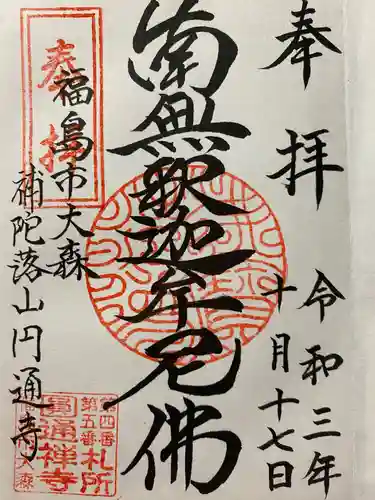 奉拝
令和三年
十月十七日
南無釈迦牟尼佛
奉拝
福島市大森
補陀落山円通寺
第四番
第五番
札所
圓通禅寺
大森